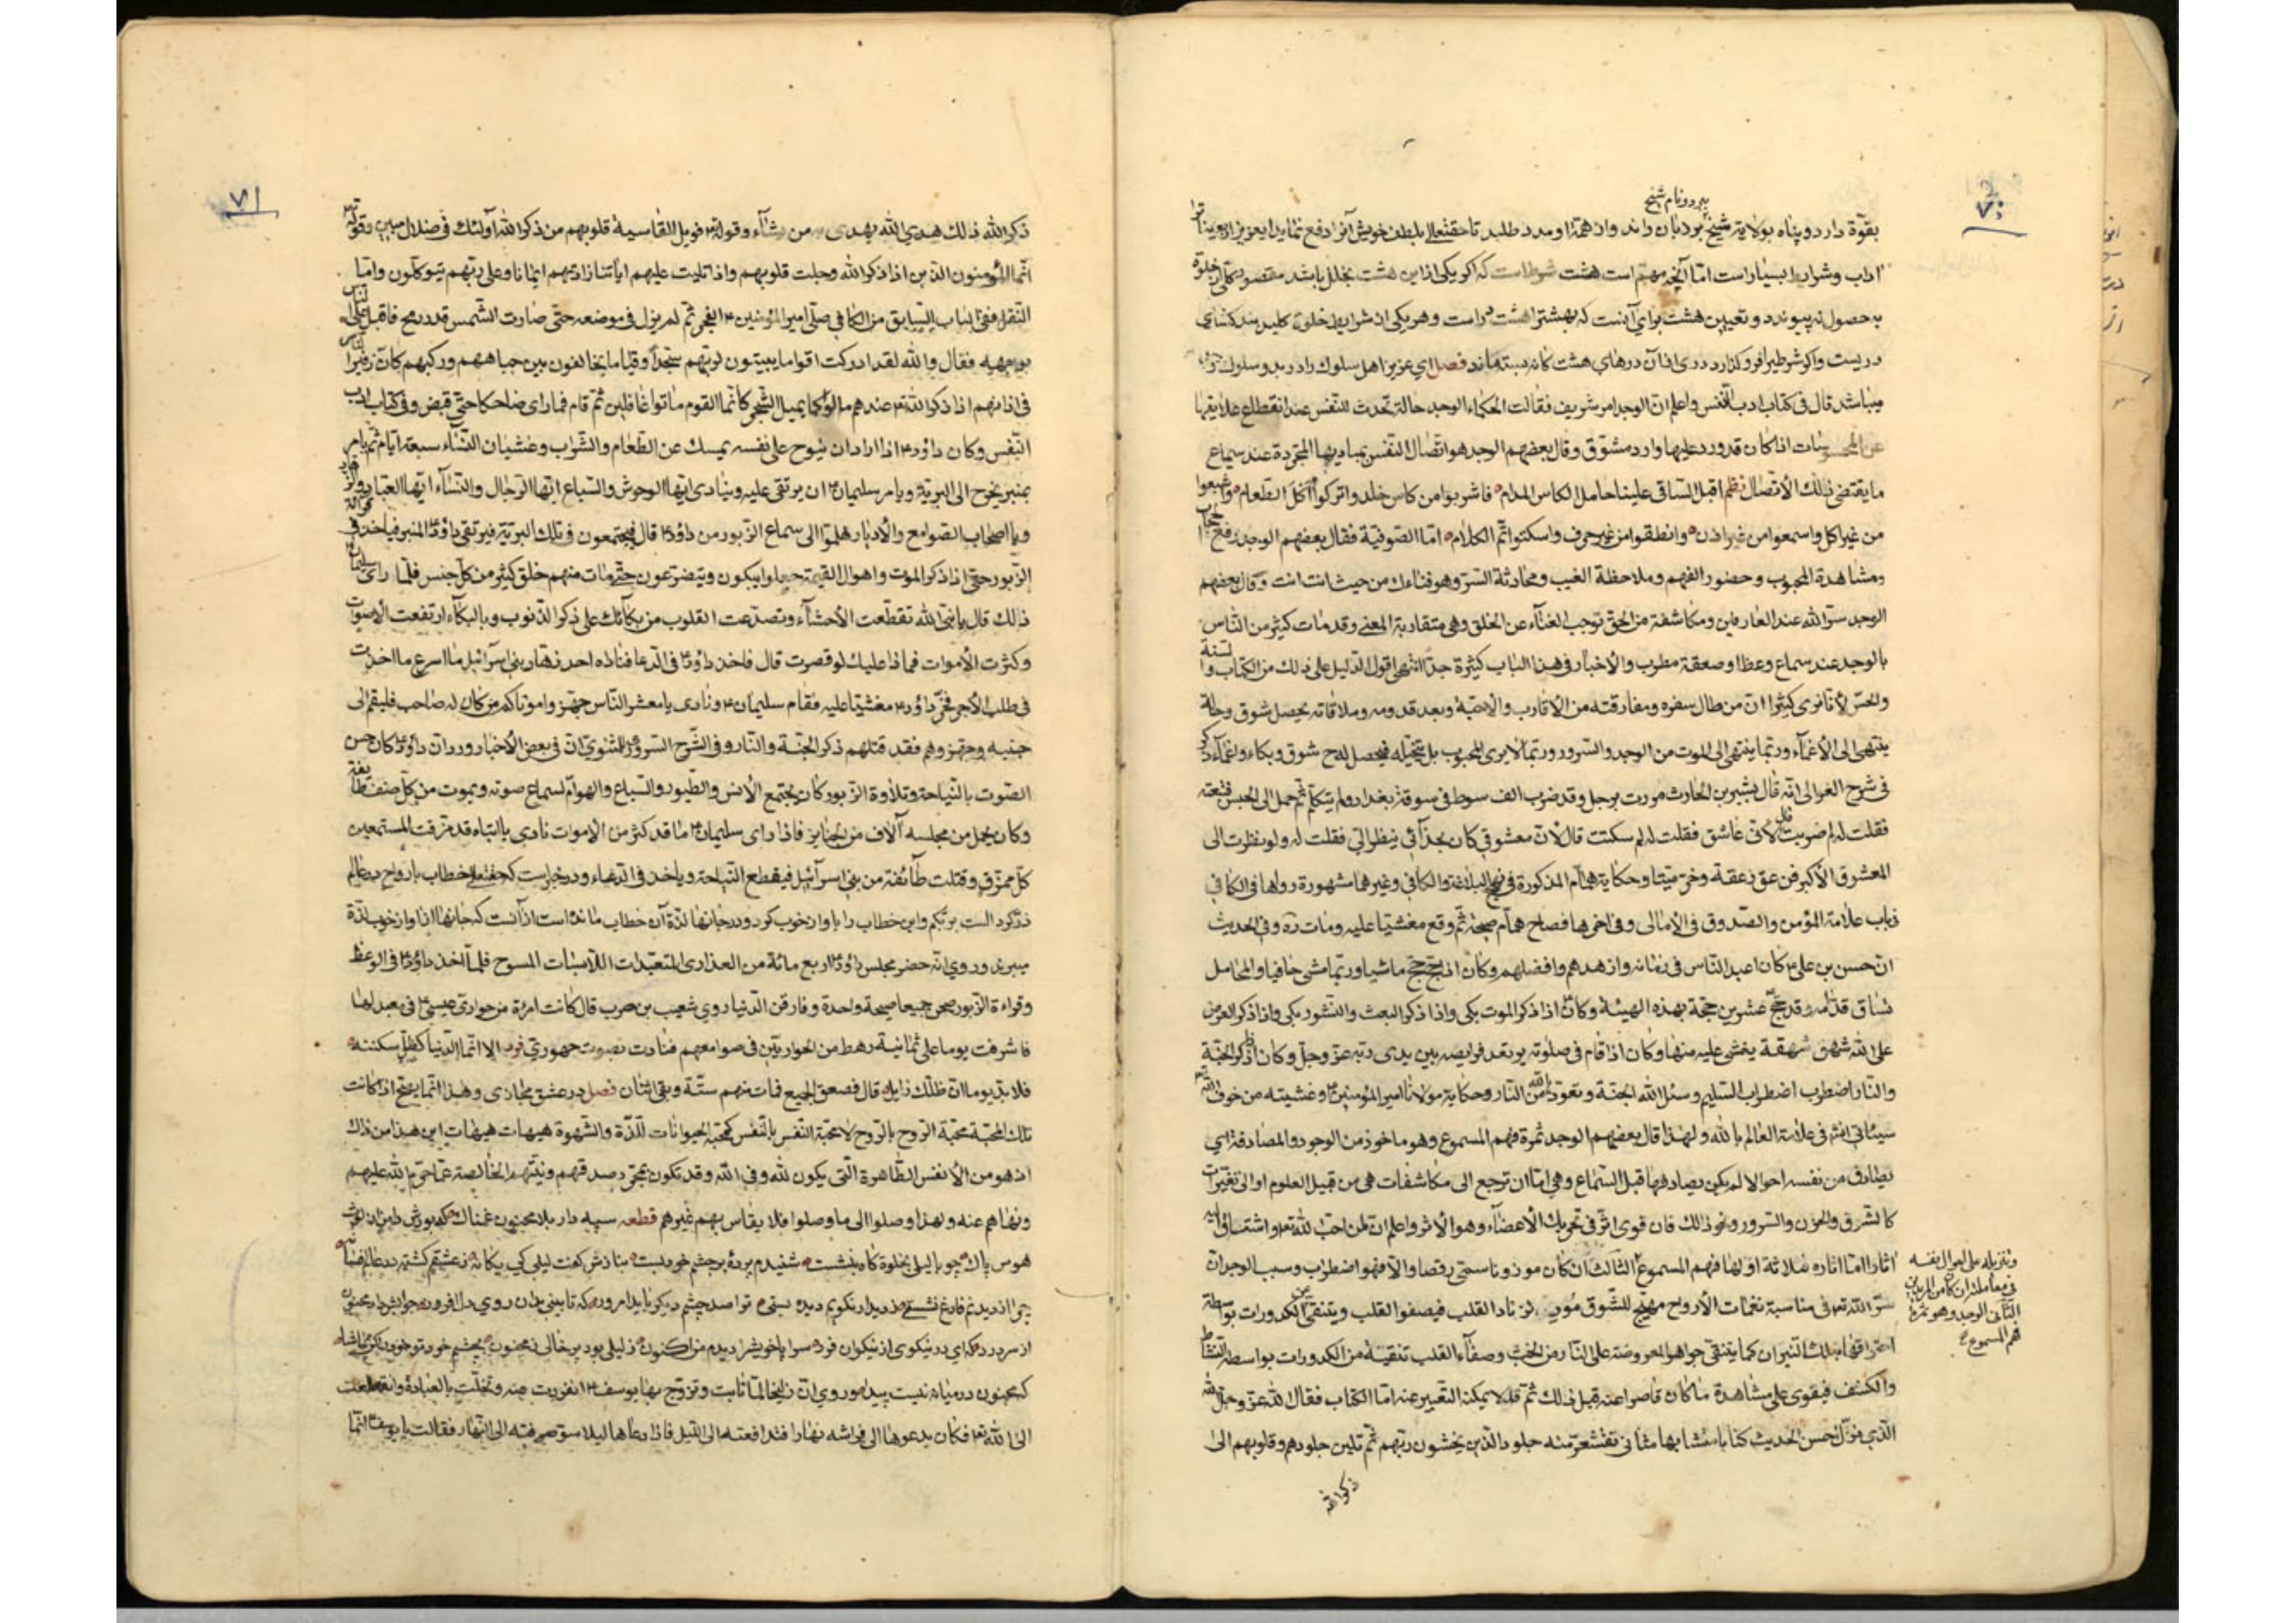 ٧٠
ببرد و نام شیخ
بقوّة دارد و پناه بولایة شیخ برد بان راند و از همّة او مدد طلبد تا حقتعالی بلطف خویش آنرا دفع نماید ای عزیز اربعینات را
اداب و شرایط بسیار است امّا آنچه مهم است هشت شرط است که اگر یکی از این هشت بخلل باشد مقصود کلّی از خلوة
بحصول نپیوندد و تعیین هشت برای آنست که بهشت را هشت در است و هر یکی از شرایط خلوة کلید بند گشای
دریست و اگر شرطی را فرو گذارد دری از آن درهای هشت گانه بسته ماند فصل ای عزیز اهل سلوک را درد بد و سلوک
میباشد قال فی کتاب ادب النفس و اعلم انّ الوجد امر شریف فقالت الحکماء الوجد حالة تحدث للنفس عند انقطاع علایقها
عن المحسوسات اذا کان قد ورد علیها وارد مشوّق و قال بعضهم الوجد هو اتّصال النفس بمبادیها المجرّدة عند سماع
ما یقتضی ذلک الاتّصال نظم اقبل السّاقی علینا حامل الکاس المدام فاشربوا من کاس خلد و اترکوا اکل الطعام و اشبعوا
من غیر اکل و اسمعوا من غیر اذن و انطقوا من غیر حرف و اسکتوا تمّ الکلام امّا الصّوفیّة فقال بعضهم الوجد رفع الحجاب
و مشاهدة المحبوب و حضور الفهم و ملاحظة الغیب و محادثة السّر و هو فناءک من حیث انت انت و قال بعضهم
الوجد سرّ الله عند العارفین و مکاشفة من الحق توجب الفناء عن الخلق و هی متقاربة المعنی و قد مات کثیر من الناس
بالوجد عند سماع وعظ او صعقة مطرب و الاخبار فی هذا الباب کثیرة جدّا انتهی اقول الدلیل علی ذلک من الکتاب و السنة
و الحسّ لانّا نری کثیرا انّ من طال سفره و مفارقته من الاقارب و الاحبّة و بعد قدومه و ملاقاته یحصل شوق و حالة
ینتهی الی الاغماء و ربّما ینتهی الی الموت من الوجد و السرور و ربّما لا یری المحبوب بل یتخیّله فیحصل له ح شوق و بکاء و اغماء ذکر
فی شرح الغوالی انّه قال بشیر بن الحارث مررت برجل و قد ضرب الف سوط فی سوقة بغداد و لم یتکلم ثم حمل الی الحبس فتبعته
فقلت له لم ضربت قال لانّی عاشق فقلت له لم سکتت قال لانّ معشوقی کان بحذائی ینظر الیّ فقلت له و لو نظرت الی
المعشوق الاکبر فزعق زعقة و خرّ میّتا و حکایة همّام المذکورة فی نهج البلاغة و الکافی و غیرهما مشهورة رواها فی الکافی
فی باب علامة المؤمن و الصّدوق فی الامالی و فی اخرها فصاح همّام صیحة ثم وقع مغشیا علیه و مات ره و فی الحدیث
انّ حسن بن علی ع کان اعبد الناس فی زمانه و ازهدهم و افضلهم و کان اذا حج حج ماشیا و ربّما مشی حافیا و المحامل
تساق قدّامه و قد حجّ عشرین حجّة بهذه الهیئة و کان اذا ذکر الموت بکی و اذا ذکر البعث و النشور بکی و اذا ذکر العرض
علی الله شهق شهقة یغشی علیه منها و کان اذا قام فی صلوته یرتعد فرایصه بین یدی ربّه عزّ و جلّ و کان اذا ذکر الجنّة
و النار اضطرب اضطراب السلیم و سئل الله الجنّة و تعوّذ بالله من النار و حکایة مولانا امیر المؤمنین ع و غشیته من خوف الله تع
سیئاتی انشم فی علامة العالم بالله و لهذا قال بعضهم الوجد ثمرة فهم المسموع و هو ماخوذ من الوجود و المصادفة ای
یصادف من نفسه احوالا لم یکن یصادفها قبل السّماع و هی امّا ان ترجع الی مکاشفات هی من قبیل العلوم او الی تغیّرات
کالشوق و الحزن و السرور و نحو ذلک فان قوی اثّر فی تحریک الاعضاء و هو الاثر و اعلم انّ لمن احبّ الله تع و اشتاق الیه
آثارا امّا اثاره ثلاثة اوّلها فهم المسموع الثالث ان کان موزونا سمّی رقصا و الّا فهو اضطراب و سبب الوجد انّ
سرّ الله تع فی مناسبة نغمات الارواح مهیّج للشوق مؤدّی لزناد القلب فیصفوا القلب و یتنقی من الکدورات بواسطة
احتراقها بتلک النیران کما یتنقی جواهر المعروضة علی النار من الخبث و صفاء القلب تنقیة من الکدورات بواسطة النشاط
و الکشف فیقوی علی مشاهدة ما کان قاصرا عنه قبل ذلک ثم قد لا یمکنه التعبیر عنه امّا الکتاب فقال الله عزّ و جل الله
الذی نزّل احسن الحدیث کتابا متشابها مثانی تقشعرّ منه جلود الذین یخشون ربّهم ثم تلین جلودهم و قلوبهم الی
ذکر الله
و تنزیله علی احوال نفسه
فی معاملته ان کان من المریدین
الثانی الوجد و هو ثمرة
فهم المسموع
٧١
ذکر الله ذلک هدی الله یهدی به من یشآء و قوله تع فویل للقاسیة قلوبهم من ذکر الله اولئک فی ضلال مبین و قوله تع
انّما المؤمنون الذین اذا ذکر الله وجلت قلوبهم و اذا تلیت علیهم ایاتنا زادتهم ایمانا و علی ربّهم یتوکلون و امّا
النقل ففی الباب السابق من الکافی صلّی امیر المؤمنین ع الفجر ثم لم یزل فی موضعه حتّی صارت الشّمس قدر رمح فاقبل علی الناس
بوجهه فقال و الله لقد ادرکت اقواما یبیتون لربّهم سجّدا و قیاما یخالفون بین جباههم و رکبهم کانّ زفیر النار
فی اذانهم اذا ذکر الله تع عندهم مالوا کما یمیل الشّجر کانّما القوم ماتوا غافلین ثم قام فما رای ضاحکا حتّی قبض و فی کتاب ادب
النّفس و کان داود ع اذا اراد ان ینوح علی نفسه یمسک عن الطعام و الشّراب و غشیان النّساء سبعة ایّام ثم یامر
بمنبر یخرج الی البریّة و یامر سلیمان ع ان یرتقی علیه و ینادی ایّها الوحوش و السّباع ایّها الرّجال و النّسآء ایّها العبّاد و الزّهاد
و یا اصحاب الصّوامع و الادیار هلمّوا الی سماع الزّبور من داود ع قال فیجتمعون فی تلک البریّة فیرتقی داود ع المنبر فیاخذ فی قرائة
الزّبور حتّی اذا ذکر الموت و اهوال القیمة جعلوا یبکون و یتضرّعون حتّی مات منهم خلق کثیر من کلّ جنس فلمّا رای سلیمان
ذلک قال یا نبیّ الله تقطّعت الاحشآء و تصدّعت القلوب من بکآئک علی ذکر الذّنوب و بالبکآء ارتفعت الاصوات
و کثرت الاموات فماذا علیک لو قصرت قال فاخذ داود ع فی الدّعا فناداه احد زهّاد بنی اسرآئیل ما اسرع ما اخذت
فی طلب الاجر فخرّ داود ع مغشیّا علیه فقام سلیمان ع و نادی یا معشر الناس جهّزوا موتاکم من کان له صاحب فلیقم الی
جنبه و جهّزوهم فقد قتلهم ذکر الجنّة و النّار و فی الشّرح السروری للمثنوی انّ فی بعض الاخبار ورد ان داود ع کان حسن
الصّوت بالنّیاحة و تلاوة الزّبور کان یجتمع الانس و الطّیور و السّباع و الهوامّ لسماع صوته و یموت من کلّ صنف طایفة
و کان یحمل من مجلسه آلاف من الجنایز فاذا رای سلیمان ع ما قد کثر من الاموات نادی یا ابتاه قد مزّقت المستمعین
کلّ ممزّق و قتلت طآئفة من بنی اسرآئیل فیقطع النّیاحة و یاخذ فی الدّعاء و در خبر است که حقتعالی خطاب بارواح در عالم
ذر کرد الست بربّکم و این خطاب را باواز خوب کرد و در جانها لذّة آن خطاب مانده است از آنست که جانها اذا واز خوب لذّة
میبرند و روی انّه حضر مجلس داود ع اربع مائة من العذاری المتعبّدات اللّابسات المسوح فلمّا اخذ داود ع فی الوعظ
و قراءة الزّبور صحن جمیعا صیحة واحدة و فارقن الدّنیا روی شعیب بن حرب قال کانت امرئة من حواری عیسی ع فی معبد لها
فاشرفت یوما علی ثمانیة رهط من الحواریّین فی صوامعهم فنادت بصوت جهوری فرد الا انّما الدّنیا کظلّ سکنته
فلا بدّ یوما انّ ظلّک زایل قال فصعق الجمیع فمات منهم ستّة و بقی اثنان فصل در عشق مجازی و هذا انّما یصحّ اذا کانت
تلک المحبّة محبّة الرّوح بالرّوح لا محبّة النّفس بالنّفس کمحبّة الحیوانات للّذّة و الشّهوة هیهات هیهات این هذا من ذلک
اذ هو من الانفس الطّاهرة الّتی یکون لله و فی الله و قد تکون بمجرّد صدقهم و نیّتهم الخالصة عمّا حرّم الله علیهم
و نهاهم عنه و لهذا وصلوا الی ما وصلوا فلا یقاس بهم غیرهم قطعه
هوس پاک چو با لیلی بخلوة گاه بنشست شنیدم پردۀ بر چشم خود بست
چرا از دیدنم فارغ نشستی ز دیدار نکویم دیده بستی تو را صد چشم دیگر باید امروز که تا بینی بدان روی دل افروز
که مجنون در میانه نیست پیدا و روی انّ زلیخا لمّا تابت و تزوّج بها یوسف ع انفردت عنه و تخلّت بالعبادة و انقطعت
الی الله تع فکان یدعوها الی فراشه نهارا فتدافعته الی اللیل فاذا دعاها لیلا سوّفته الی النّهار فقالت یا یوسف انّما